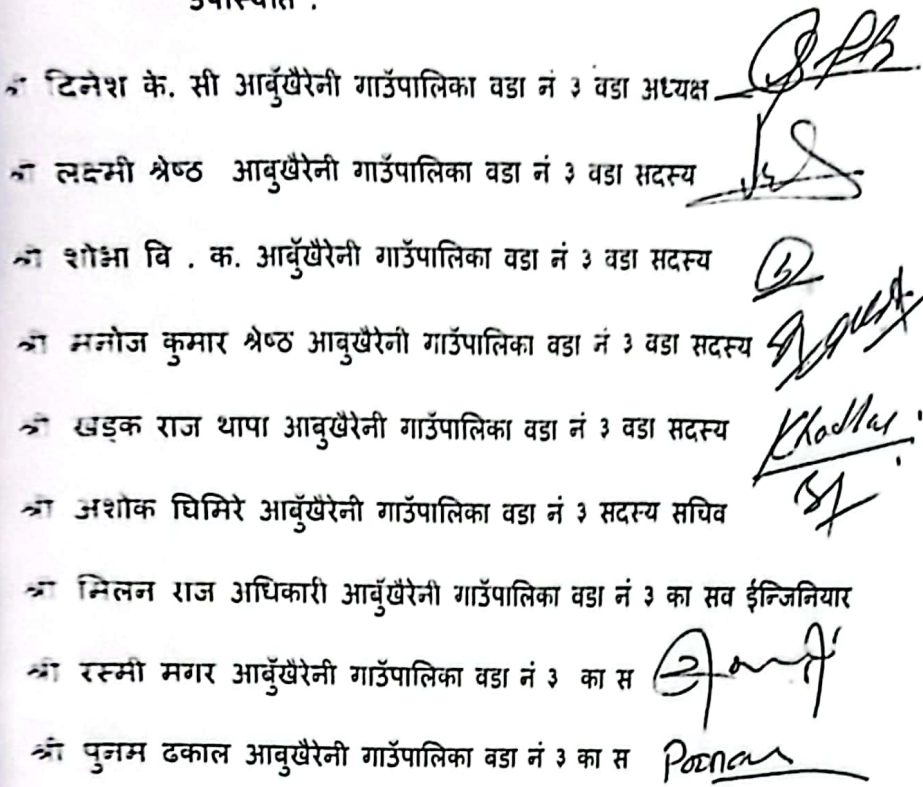 उपस्थिति :
श्री दिनेश के. सी आबुँखैरेनी गाउँपालिका वडा नं ३ वडा अध्यक्ष
श्री लक्ष्मी श्रेष्ठ आबुखैरेनी गाउँपालिका वडा नं ३ वडा सदस्य
श्री शोभा वि . क. आबुँखैरेनी गाउँपालिका वडा नं ३ वडा सदस्य
श्री मनोज कुमार श्रेष्ठ आबुखैरेनी गाउँपालिका वडा नं ३ वडा सदस्य
श्री खड्क राज थापा आबुखैरेनी गाउँपालिका वडा नं ३ वडा सदस्य
श्री अशोक घिमिरे आबुँखैरेनी गाउँपालिका वडा नं ३ सदस्य सचिव
श्री मिलन राज अधिकारी आबुँखैरेनी गाउँपालिका वडा नं ३ का सव ईन्जिनियार
श्री रस्मी मगर आबुँखैरेनी गाउँपालिका वडा नं ३ का स
श्री पुनम ढकाल आबुखैरेनी गाउँपालिका वडा नं ३ का स